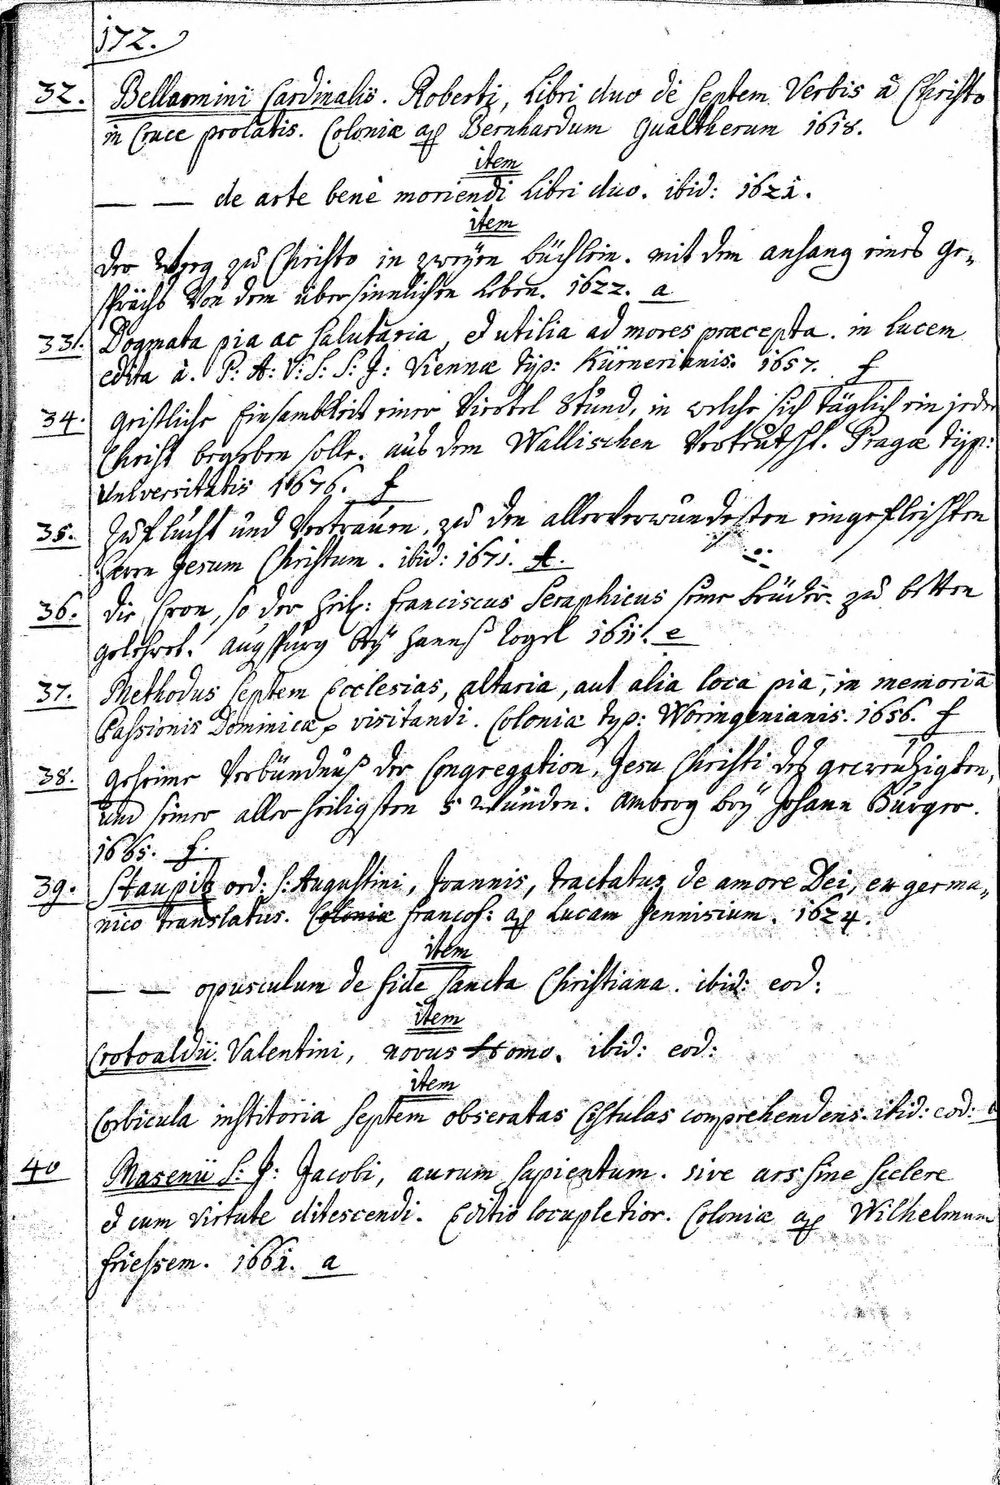 172.
32. Bellarmini Cardinalis. Roberti, Libri duo de septem Verbis à Christo
in Cruce prolatis. Coloniæ ap Bernhardum Gualtherum 1618.
item
— — de arte benè moriendi Libri duo. ibid: 1621.
item
Der Weeg zu Christo in zweyen büchlein. mit dem anhang eines Ge-
sprächs Von dem übersinnlichen Leben. 1622. a
33. Dogmata pia ac salutaria, et utilia ad mores præcepta. in Lucem
edita à. P: A: V: S: S: J: Viennæ typ: Kürnerianis. 1657. f
34. Geistliche Einsambkeit einer Viertel Stund, in welche sich täglich ein jeder
Christ begeben solle. aus dem Wallischen Verteutscht. Pragæ typ:
Universitatis 1676. f
35. Zuflucht und Vertrauen, zu den allerverwundesten eingefleischten
Herrn Jesum Christum. ibid: 1671. A.
36. Die Cron, so der heil: Franciscus Seraphicus seine brüder zu betten
gelehret. Augspurg bey Hannß 1611. e
37. Methodus septem Ecclesias, altaria, aut alia loca pia, in memoriā
Passionis Dominicæ visitandi. Coloniæ typ: Woringenianis. 1656. f
38. Geheime Verbündnuß der Congregation, Jesu Christi deß gecreutzigten,
und seiner aller heiligsten 5 Wunden. Amberg bey Johann Burger.
1665. f.
39. Staupitz ord: S: Augustini, Joannis, tractatus de amore Dei, ex germa-
nico translatus. Coloniæ francof: ap Lucam Jennisium. 1624.
item
— — opusculum de fide sancta Christiana. ibid: eod:
item
Crotoaldii. Valentini, novus Homo. ibid: eod:
item
Corbicula institoria septem obseratas Cistulas comprehendens. ibid: eod:
40 Masenii S: J: Jacobi, aurum sapientum. sive ars sine scelere
et cum virtute ditescendi. Editio locupletior. Coloniæ ap Wilhelmum
friessem. 1661. a